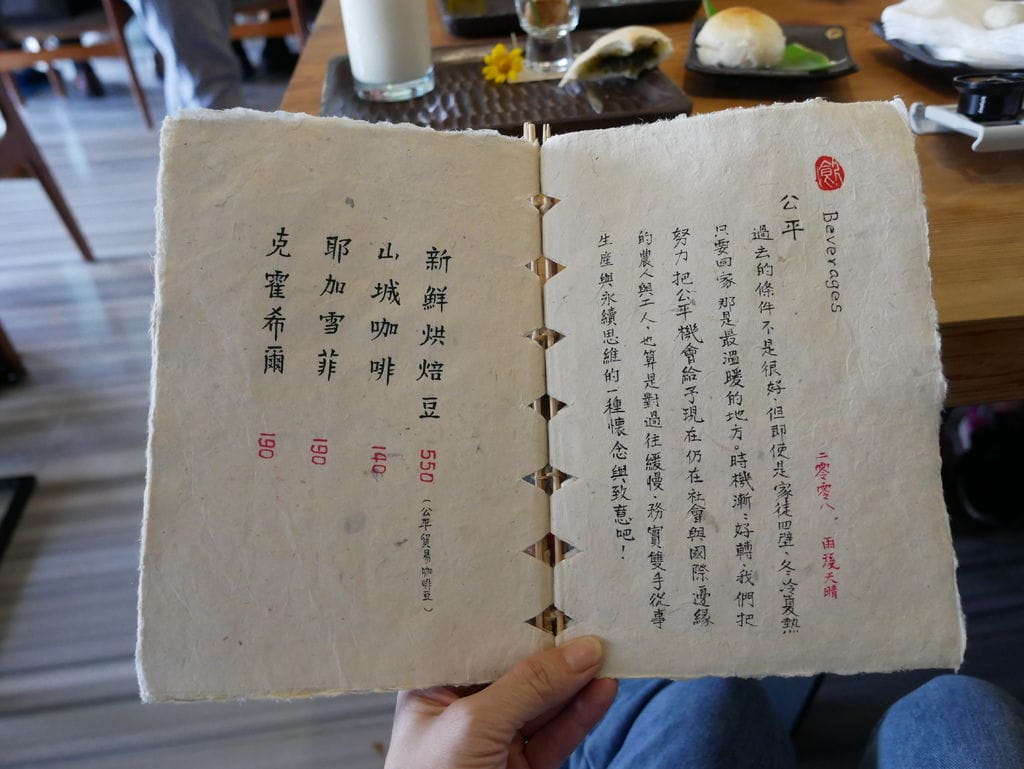 飲
Beverages
二零零八．雨後天晴
公平
過去的條件不是很好，但即使是家徒四壁、冬冷夏熱
只要回家 那是最溫暖的地方。時機漸漸好轉，我們把
努力 把公平機會給予現在仍在社會與國際邊緣
的農人與工人，也算是對過往緩慢、務實、雙手從事
生產與永續思維的一種懷念與致意吧！
新鮮烘焙豆 550（公平貿易咖啡豆）
山城咖啡 140
耶加雪菲 190
克霍希爾 190